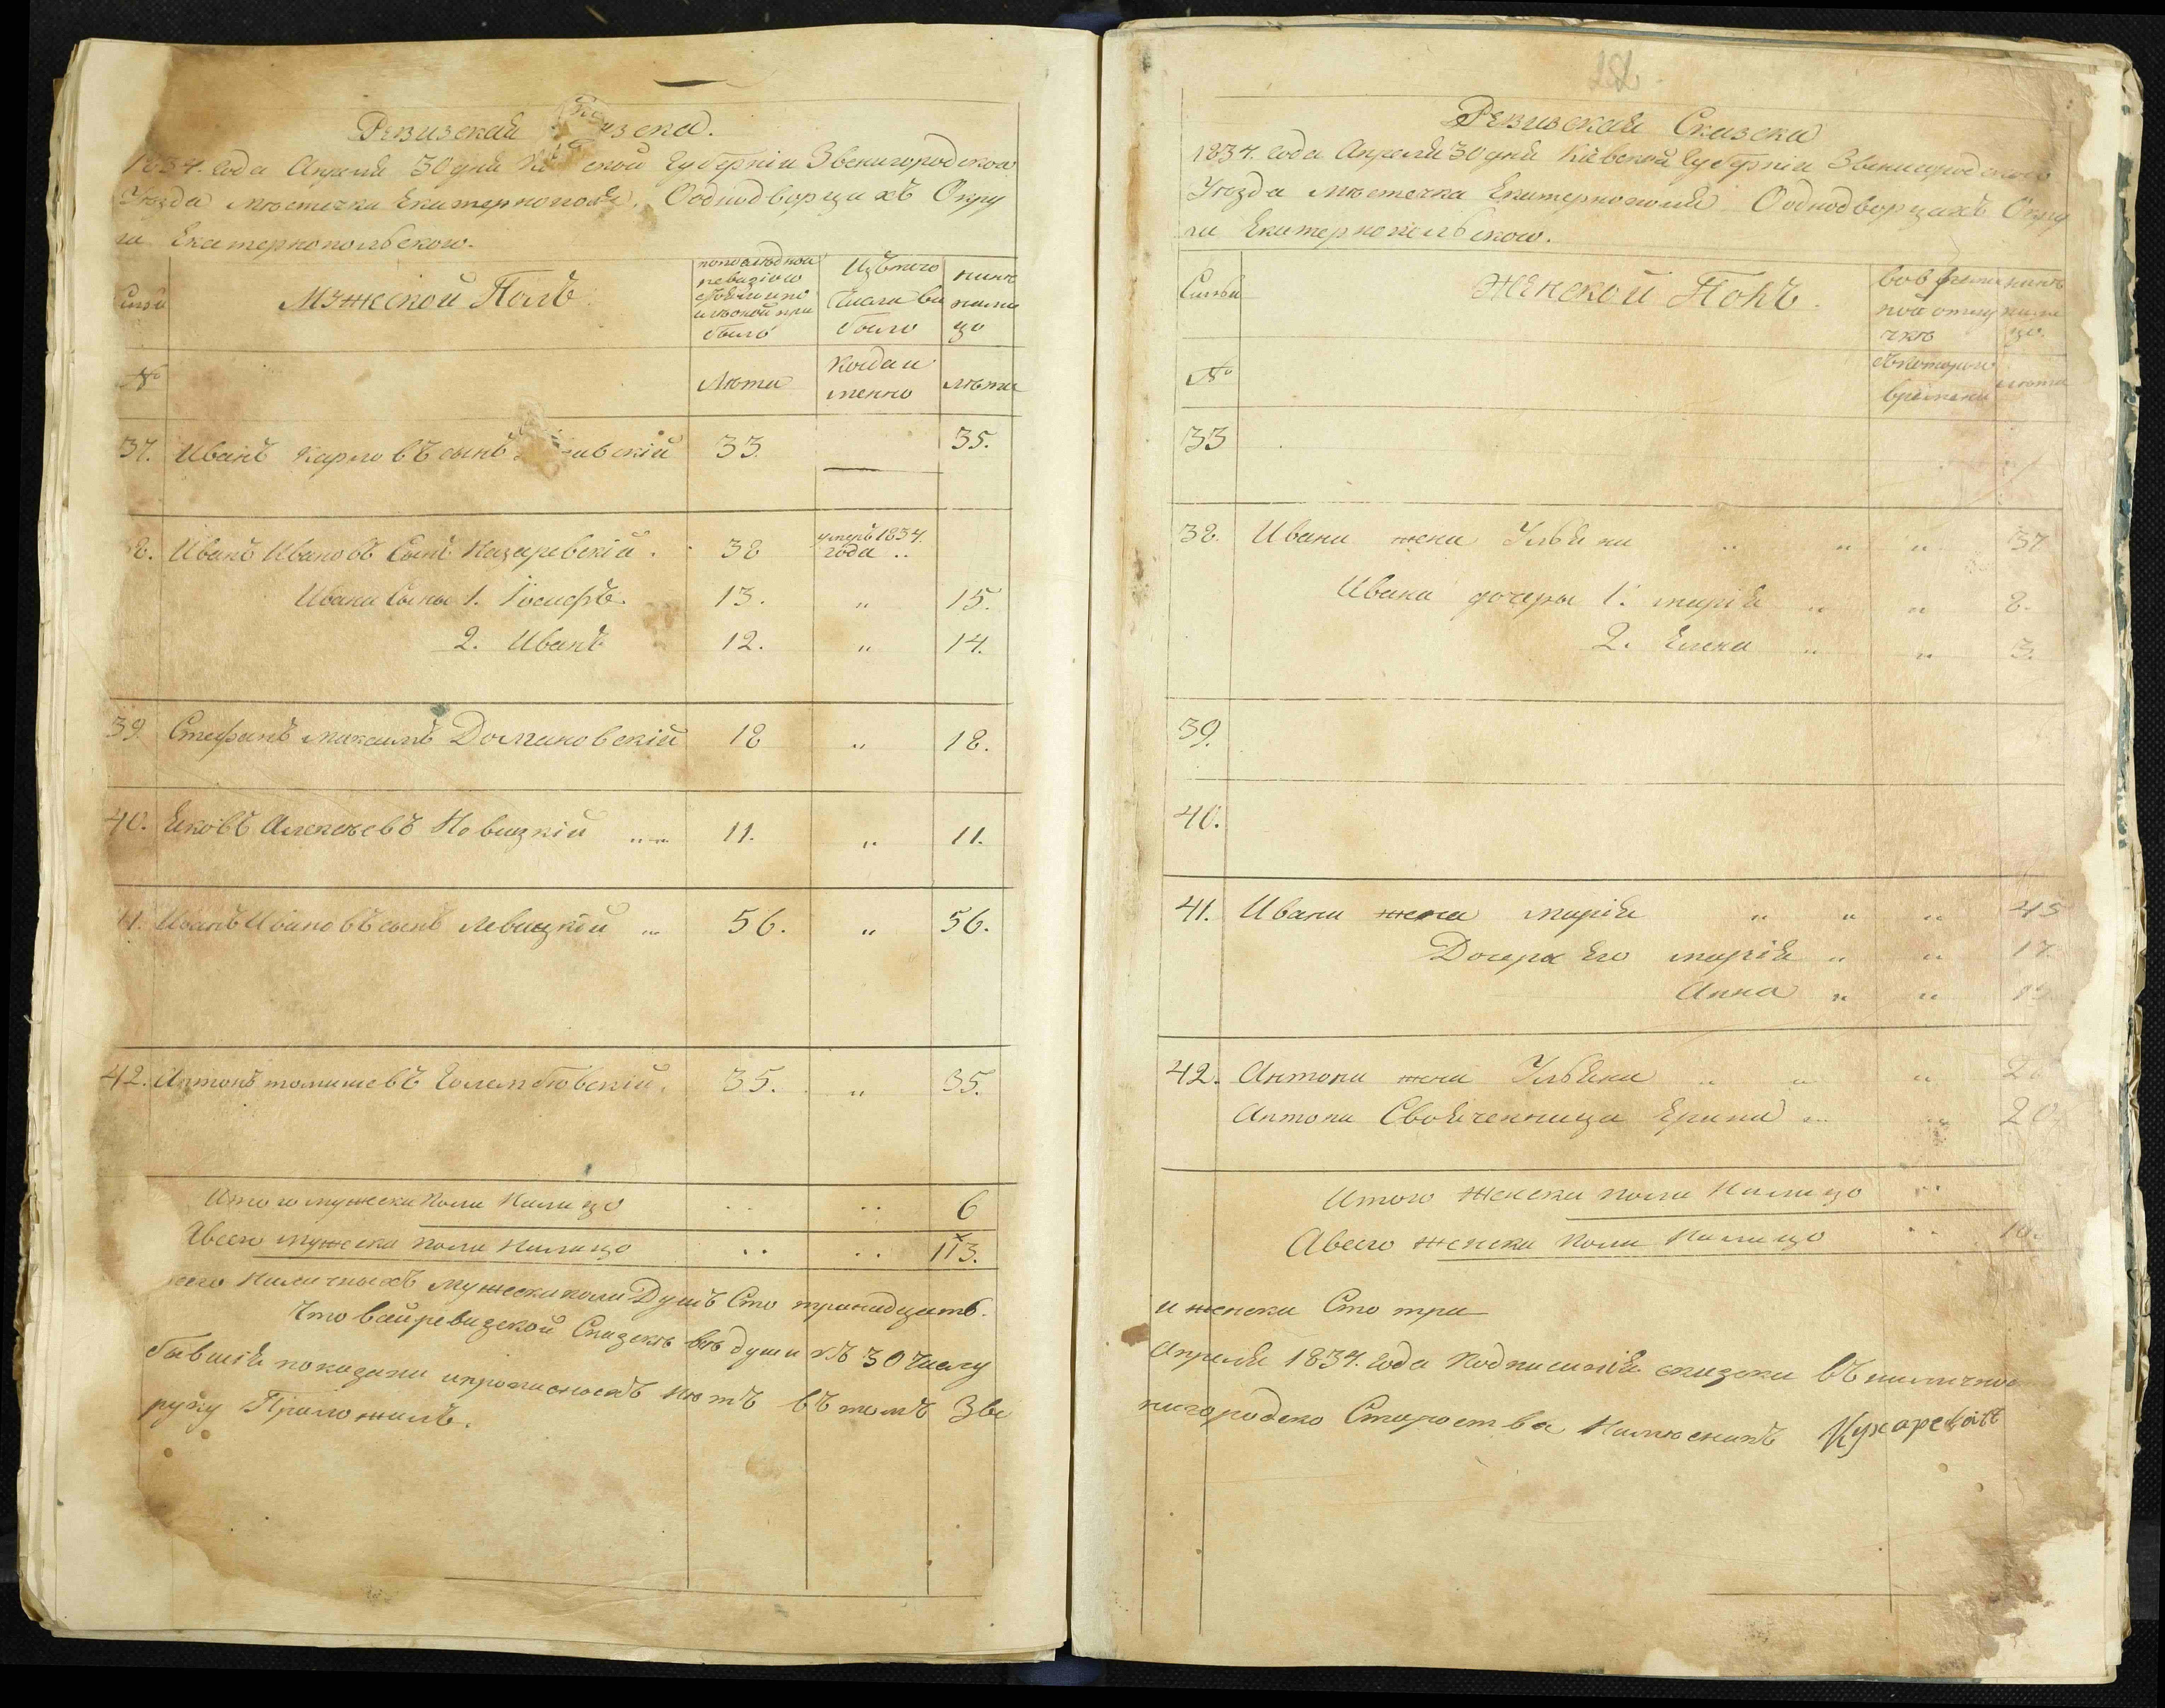 Ревизская
1834. года Апреля 30 дня ской Губернiи Звенигородского
Уезда местечка Екатеринополя. О однодворцахъ Окру
ги Екатеринопольского.
Семьи
Мужеской Полъ
по последной ревизiи
было
Изъ того Числа вы было
ныне налицо
№
Лета
Когда именно
Лета
37. Иванъ Карловъ сынъ 33. 35.
8. Иванъ Ивановъ Сынъ Назаревскiй. 38 умеръ 1834. года
Ивана Сыны 1. Iосифъ. 13. " 15.
2. Иванъ 12. " 14.
39. Стефанъ Домановскiй 18 " 18.
40. Яковъ Алексеевъ Новицкiй 11. " 11.
41. Иванъ Ивановъ сынъ Левицкiй 56. " 56.
42. Антонъ Голембiовскiй. 35. " 35.
Итого мужеска пола налицо 6
Авсего мужеска пола налицо 113.
наличныхъ мужеска пола Душъ Сто тринадцать.
Что всей ревизской Сказке все души къ 30 Числу
бывшiя показаны и прописныхъ нетъ въ томъ Зве
руку Приложилъ.
Ревизская Сказка
1834. года Апреля 30 дня Кiевской Губернiи Звенигородского
Уезда местечка Екатеринополя О однодворцахъ Окру
ги Екатеринопольского.
Семьи
Женской Полъ.
во временной отлучке
ныне налицо.
№
съ которого времени
лета
33
38. Ивана жена Ульяна " " " 37
Ивана дочеры 1. марiя " " 8.
2. Елена " " 3.
39.
40.
41. Ивана жена марiя " " " 45
Дочера Его марiя " " 17.
Анна " "
42. Антона жена Ульяна " " "
Антона Свояченница Ерина 20
Итого женска пола налицо
Авсего женска пола налицо
и женска Сто три
Апреля 1834. года подписанiя сказки въ наличнос
нигородско Староства